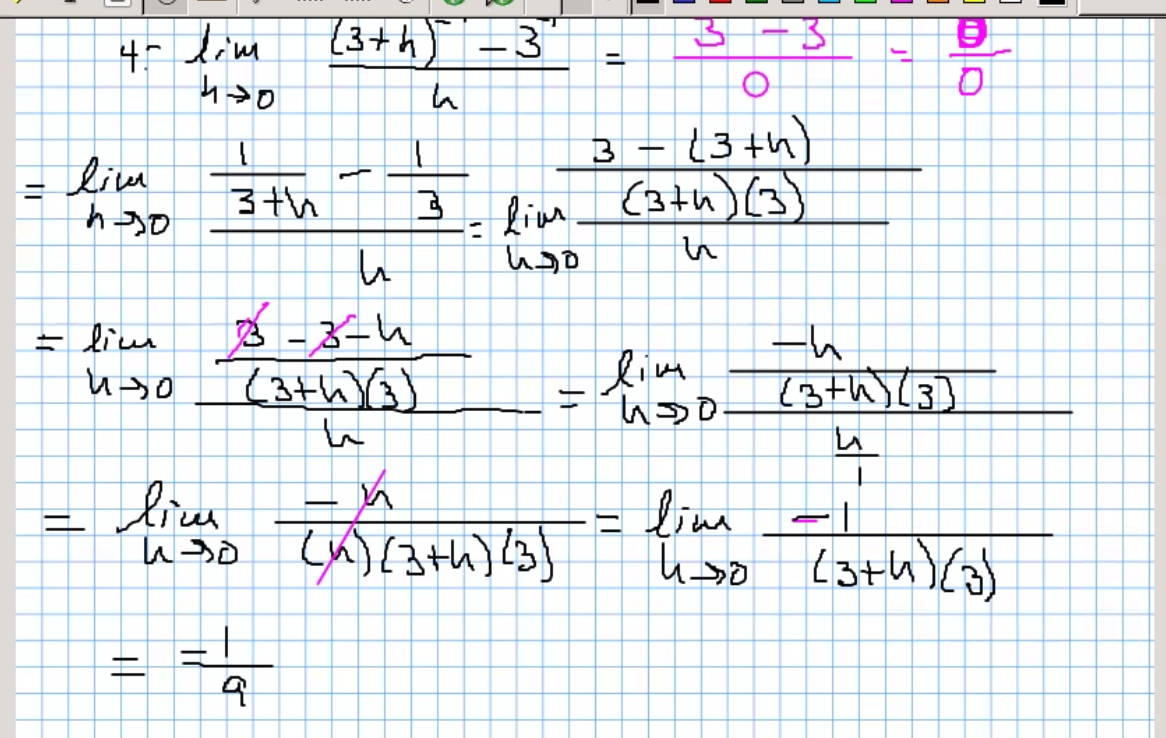 4- lim h→0 ((3+h)⁻¹ - 3⁻¹)/h = (3 - 3)/0 = 0/0
= lim h→0 (1/(3+h) - 1/3)/h = lim h→0 ((3 - (3+h))/((3+h)(3)))/h
= lim h→0 ((3 - 3 - h)/((3+h)(3)))/h = lim h→0 (-h/((3+h)(3)))/(h/1)
= lim h→0 -h/((h)(3+h)(3)) = lim h→0 -1/((3+h)(3))
= -1/9